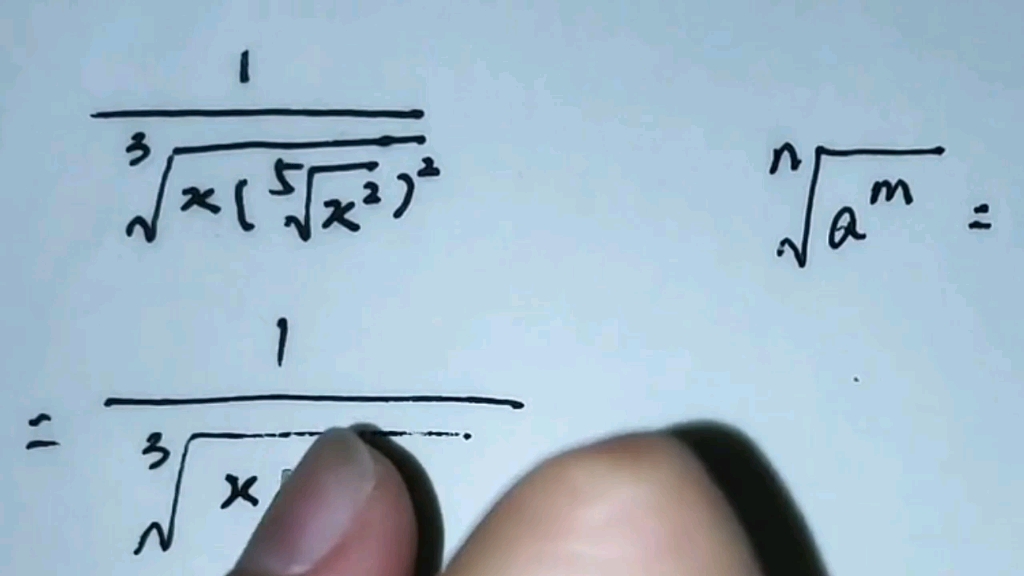 1
———
∛(x(⁵√(x²))²)
ⁿ√(aᵐ) =
= 1
———
∛(x